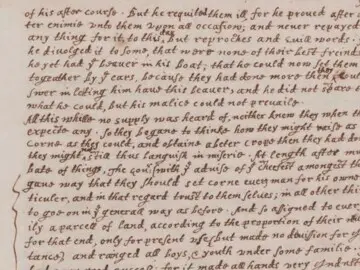 of his after course. But he requited them ill, for he proued after
ter enimie vnto them vpon all occasions, and neuer repayed
any thing for it, to this day, but reproches and euill words.
he divolged it to some, that were none of their best freinds
he yet had yͤ beauer in his boat; that he could now set them
togeather by yͤ ears, because they had done more then
swer in leting him haue this beauer, and he did not spare
what he could, but his malice could not preuaile.
All this whille no supply was heard of, neither knew they when they
expecte any. So they begane to thinke how they might raise as
Corne as they could, and obtaine a beter crope then they had done
they might not still thus languish in miserie. At length after mu
bate of things, the Gouʳ (with yͤ advise of yͤ cheefest amongest the
gaue way that they should set corne euery man for his owne
ticuler, and in that regard trust to them selues; in all other thi
to goe on in yͤ generall way as before. And so assigned to euery
ily a parcell of land, according to the proportion of their
for that end, only for present vse (but made no deuission for
tance) and ranged all boys, & youth vnder some familie.
for it made all hands very Indus